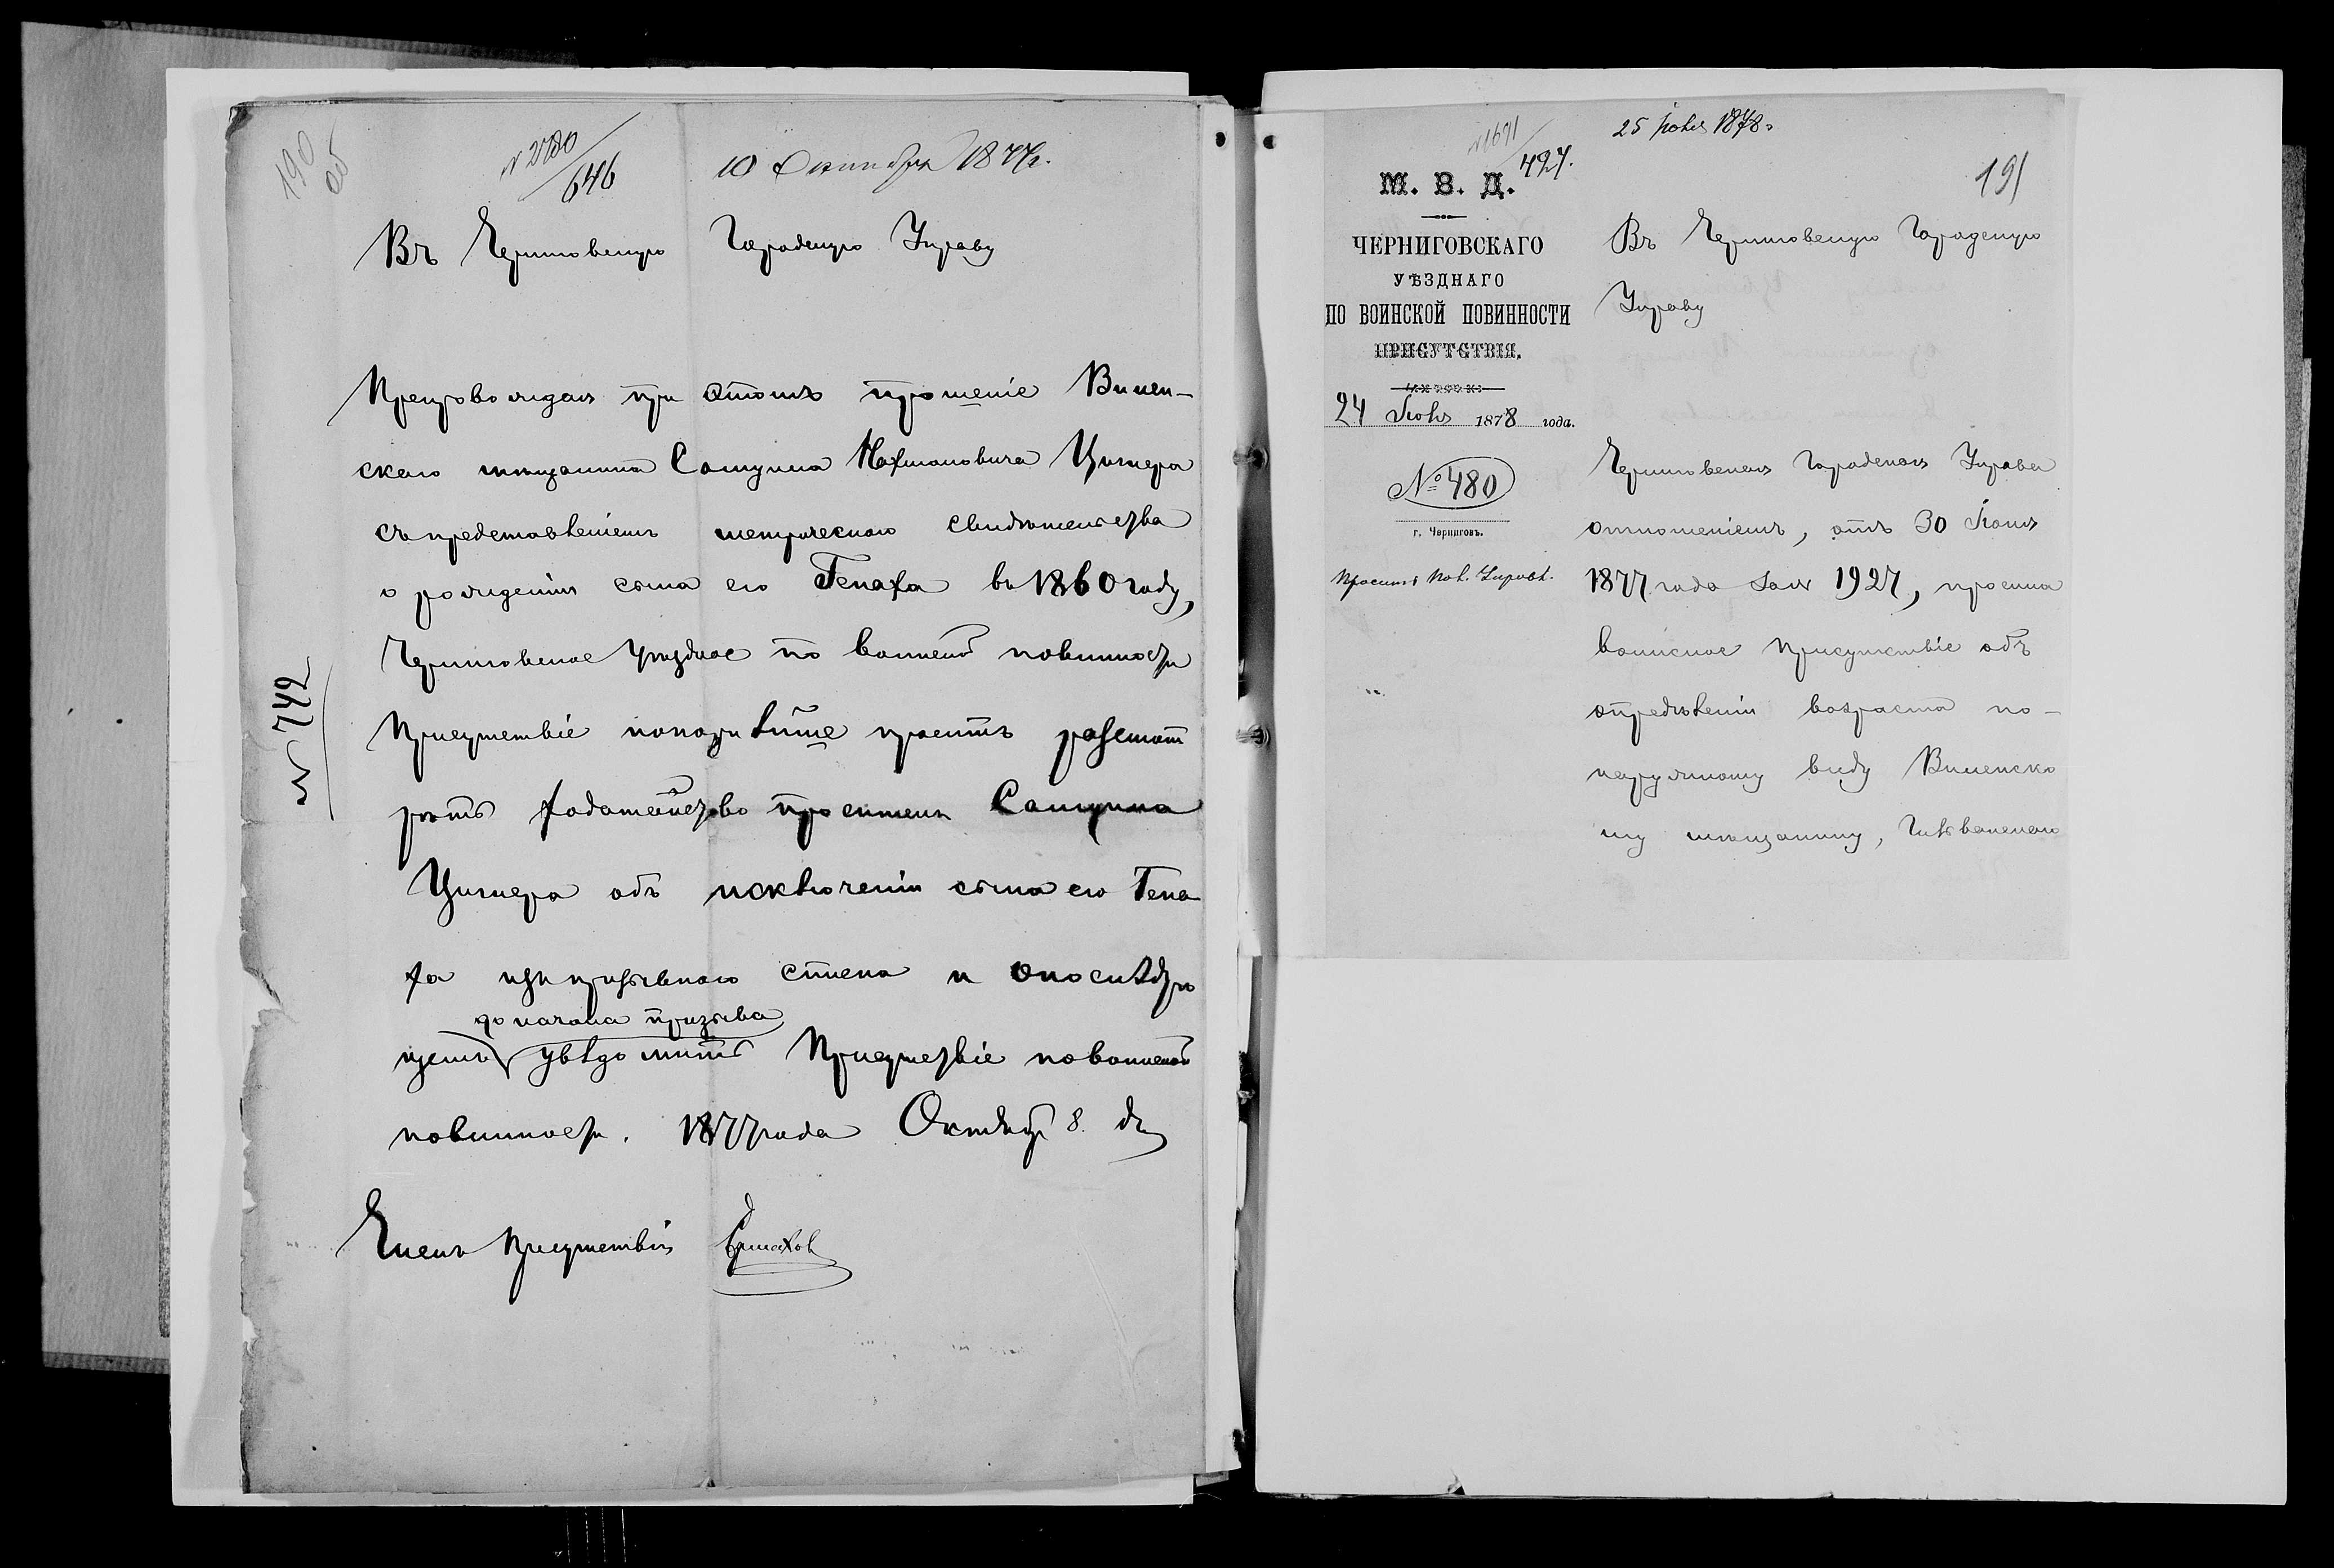 190 об
№ 2780/646
10 Октября 1877 г.
Въ Черниговскую Городскую Управу
Препровождая при этомъ прошеніе Вилен-
скаго мѣщанина Самуила Нахмановича Цимера
съ представленіемъ метрическаго свидѣтельства
о рожденіи сына его Генаха въ 1860 году,
Черниговское Уѣздное по воинской повинности
Присутствіе покорнѣйше проситъ разсмот
рѣть ходатайство просителя Самуила
Цимера объ исключеніи сына его Гена
ха изъ призывнаго списка и о послѣдую
до начала призыва
щемъ увѣдомить Присутствіе по воинской
повинности. 1877 года Октября 8 дн
Членъ Присутствія
№ 742
№ 1691/427.
25 Іюля 1878 г.
191
М. В. Д.
ЧЕРНИГОВСКАГО
УѢЗДНАГО
ПО ВОИНСКОЙ ПОВИННОСТИ
ПРИСУТСТВІЯ.
24 Іюля 1878 года.
№ 480
г. Черниговъ.
Въ Черниговскую Городскую
Управу
Черниговская Городская Управа
отношеніемъ, отъ 30 Іюня
1877 года за № 1927, просила
воинское Присутствіе объ
опредѣленіи возраста по-
наружному виду Виленско
му мѣщанину,